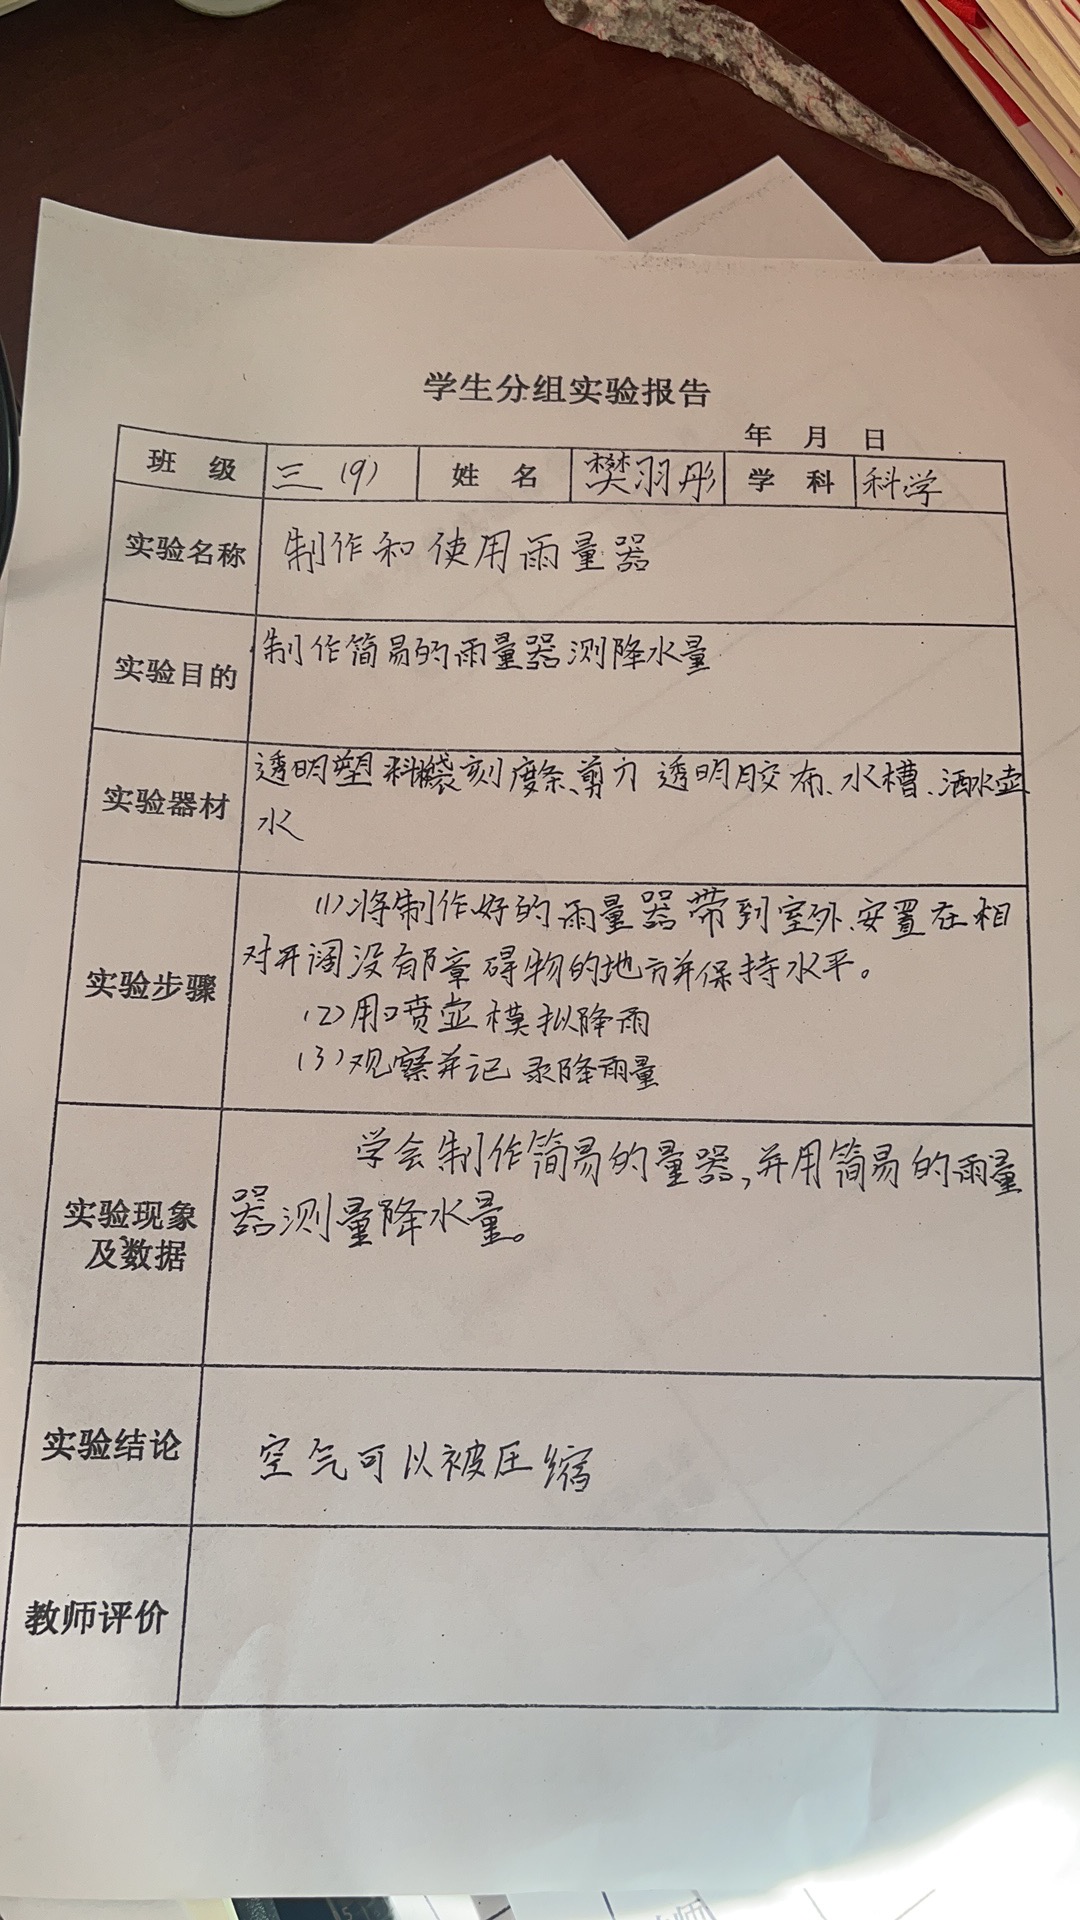 学生分组实验报告
年 月 日
班 级 三(9) 姓 名 樊羽彤 学 科 科学
实验名称 制作和使用雨量器
实验目的 制作简易的雨量器测降水量
实验器材 透明塑料袋刻度条、剪刀 透明胶布、水槽、洒水壶
水
(1)将制作好的雨量器带到室外、安置在相
对开阔没有障碍物的地方并保持水平。
实验步骤
(2)用喷壶模拟降雨
(3)观察并记录降雨量
学会制作简易的量器,并用简易的雨量
器测量降水量。
实验现象
及数据
实验结论 空气可以被压缩
教师评价